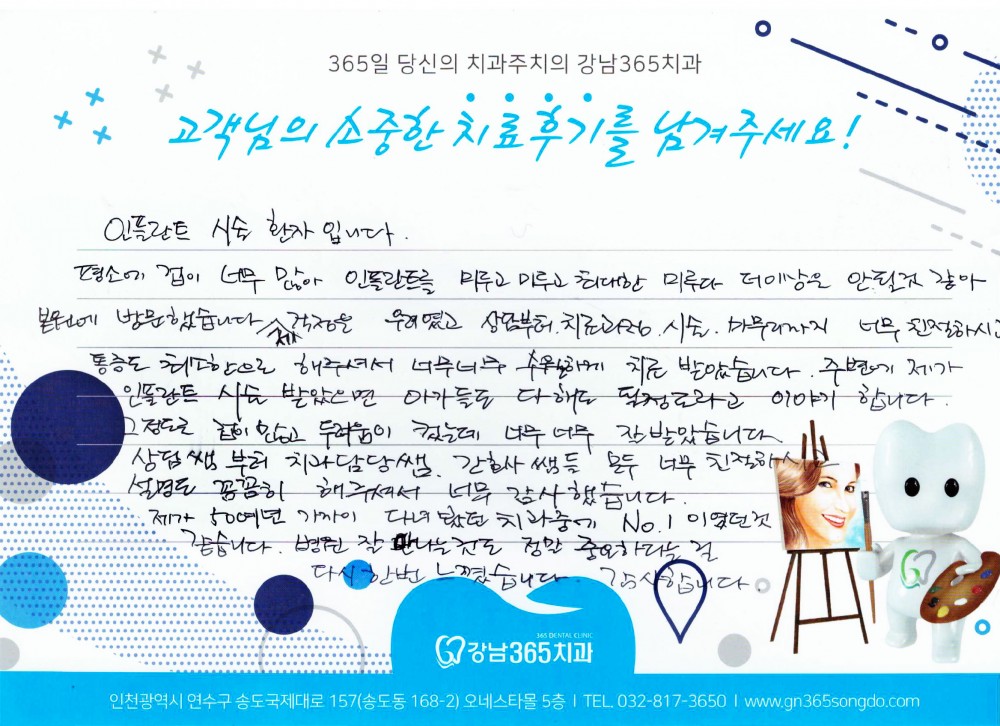 365일 당신의 치과주치의 강남365치과
고객님의 소중한 치료후기를 남겨주세요!
인플란트 시술 환자 입니다.
평소에 겁이 너무 많아 인플란트를 미루고 미루고 최대한 미루다 더이상은 안될것 같아
본원에 방문했습니다. 제 걱정은 우려였고 상담부터. 치료과정. 시술. 마무리까지 너무 친절하시고
통증도 최소한으로 해주셔서 너무너무 수월하게 치료 받았습니다. 주변에 제가
인플란트 시술 받았으면 아가들도 다 해도 될정도라고 이야기 합니다.
그정도로 겁이 많고 두려움이 컸는데 너무 너무 잘받았습니다.
상담쌤 부터 치과담당쌤. 간호사 쌤들 모두 너무 친절하시고
설명도 꼼꼼히 해주셔서 너무 감사했습니다.
제가 50여년 가까이 다녀봤던 치과중에 No.1 이였던것
같습니다. 병원 잘 만나는것도 정말 중요하다는 걸
다시 한번 느꼈습니다. 감사합니다
365 DENTAL CLINIC
강남365치과
인천광역시 연수구 송도국제대로 157(송도동 168-2) 오네스타몰 5층 | TEL. 032-817-3650 | www.gn365songdo.com